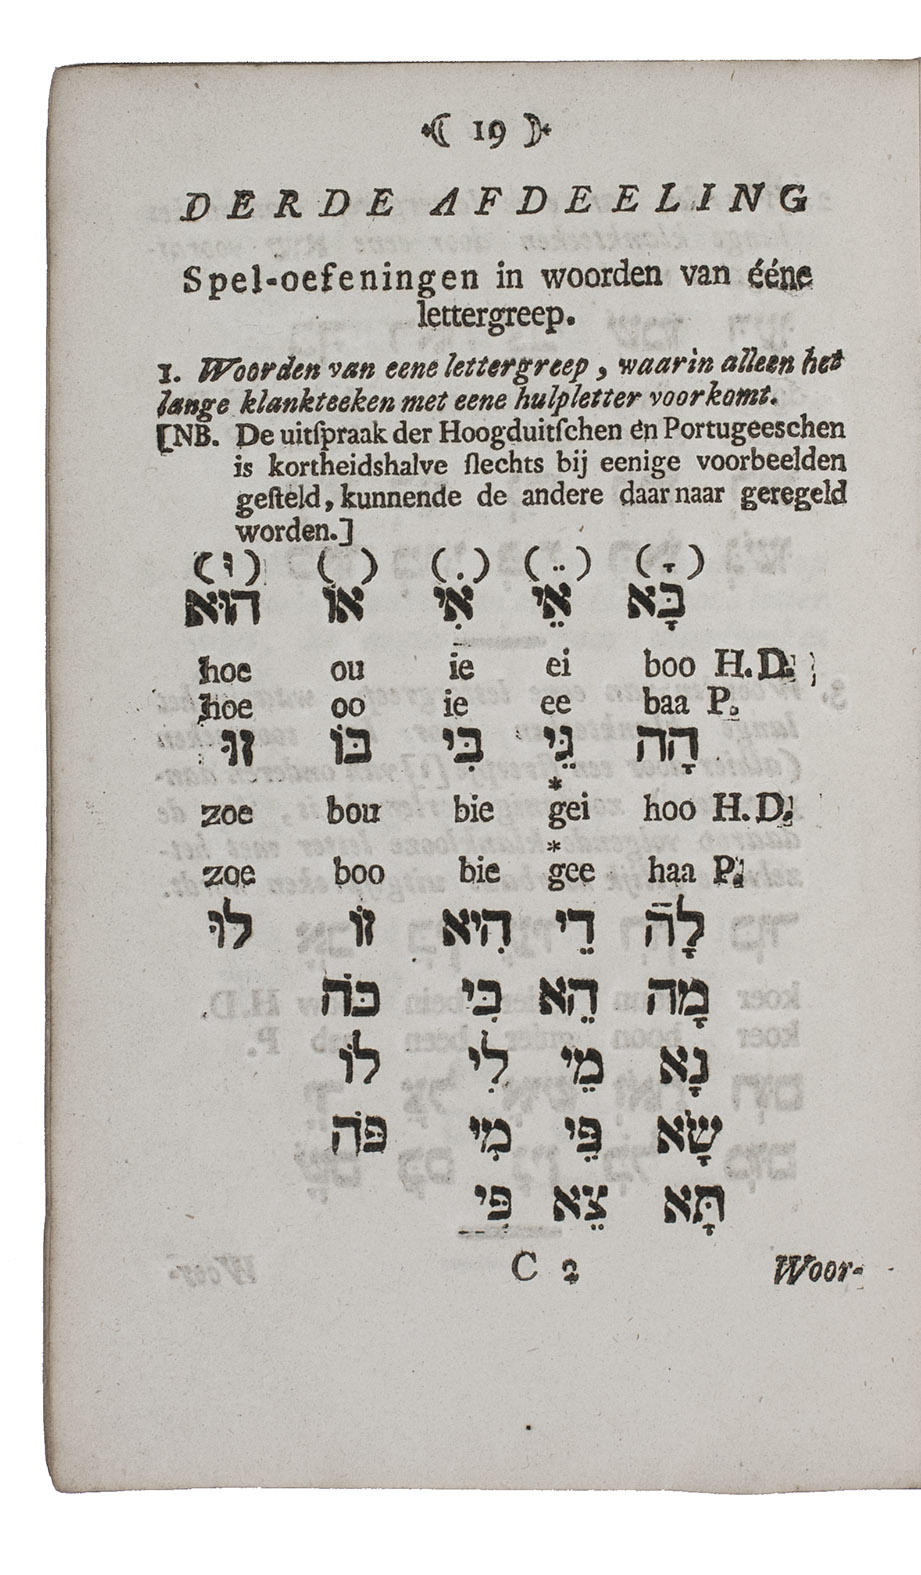 ( 19 )
DERDE AFDEELING
Spel-oefeningen in woorden van ééne
lettergreep.
1. Woorden van eene lettergreep, waarin alleen het
lange klankteeken met eene hulpletter voorkomt.
[NB. De uitſpraak der Hoogduitſchen en Portugeeschen
is kortheidshalve ſlechts bij eenige voorbeelden
geſteld, kunnende de andere daar naar geregeld
worden.]
(ָ) (ֵ) (ִ) (ֹ) (וּ)
בָּא אֵי אִי אוֹ הוּא
hoe ou ie ei boo H.D.
hoe oo ie ee baa P.
הָה גֵּי בִּי בּוֹ זוּ
* 
zoe bou bie gei hoo H.D.
*
zoe boo bie gee haa P.
לָהּ דֵי הִיא זוֹ לוּ
מָה הֵא כִּי כֹּה
נָא מֵי לִי לוֹ
שָׂא פֵּי מִי פֹּה
תָּא צֵא פִּי
C 2 Woor-